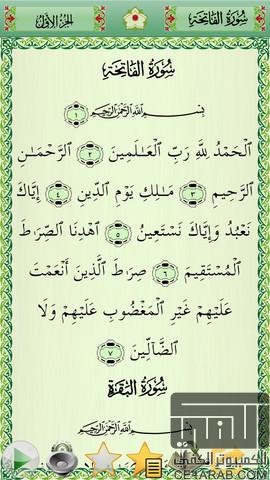 سُورَةُ الفَاتِحَةِ
الجزء الأول
سُورَةُ الفَاتِحَةِ
بِسْمِ اللَّهِ الرَّحْمَٰنِ الرَّحِيمِ ١
الْحَمْدُ لِلَّهِ رَبِّ الْعَالَمِينَ ٢ الرَّحْمَٰنِ
الرَّحِيمِ ٣ مَالِكِ يَوْمِ الدِّينِ ٤ إِيَّاكَ
نَعْبُدُ وَإِيَّاكَ نَسْتَعِينُ ٥ اهْدِنَا الصِّرَاطَ
الْمُسْتَقِيمَ ٦ صِرَاطَ الَّذِينَ أَنْعَمْتَ
عَلَيْهِمْ غَيْرِ الْمَغْضُوبِ عَلَيْهِمْ وَلَا
الضَّالِّينَ ٧
سُورَةُ البَقَرَةِ
بِسْمِ اللَّهِ الرَّحْمَٰنِ الرَّحِيمِ
الكمبيوتر الكفي
CE4ARAB.COM